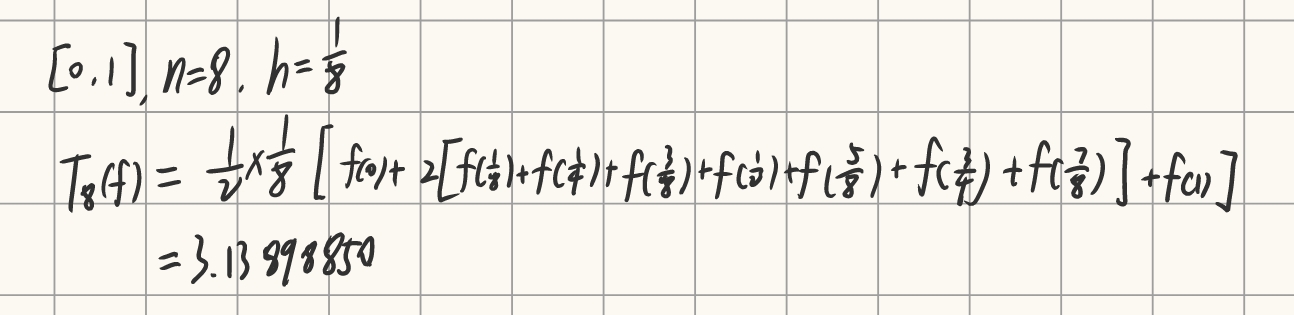 [0,1], n=8, h=1/8
T₈(f) = 1/2 × 1/8 [ f(0) + 2[f(1/8) + f(1/4) + f(3/8) + f(1/2) + f(5/8) + f(3/4) + f(7/8)] + f(1) ]
= 3.13898850